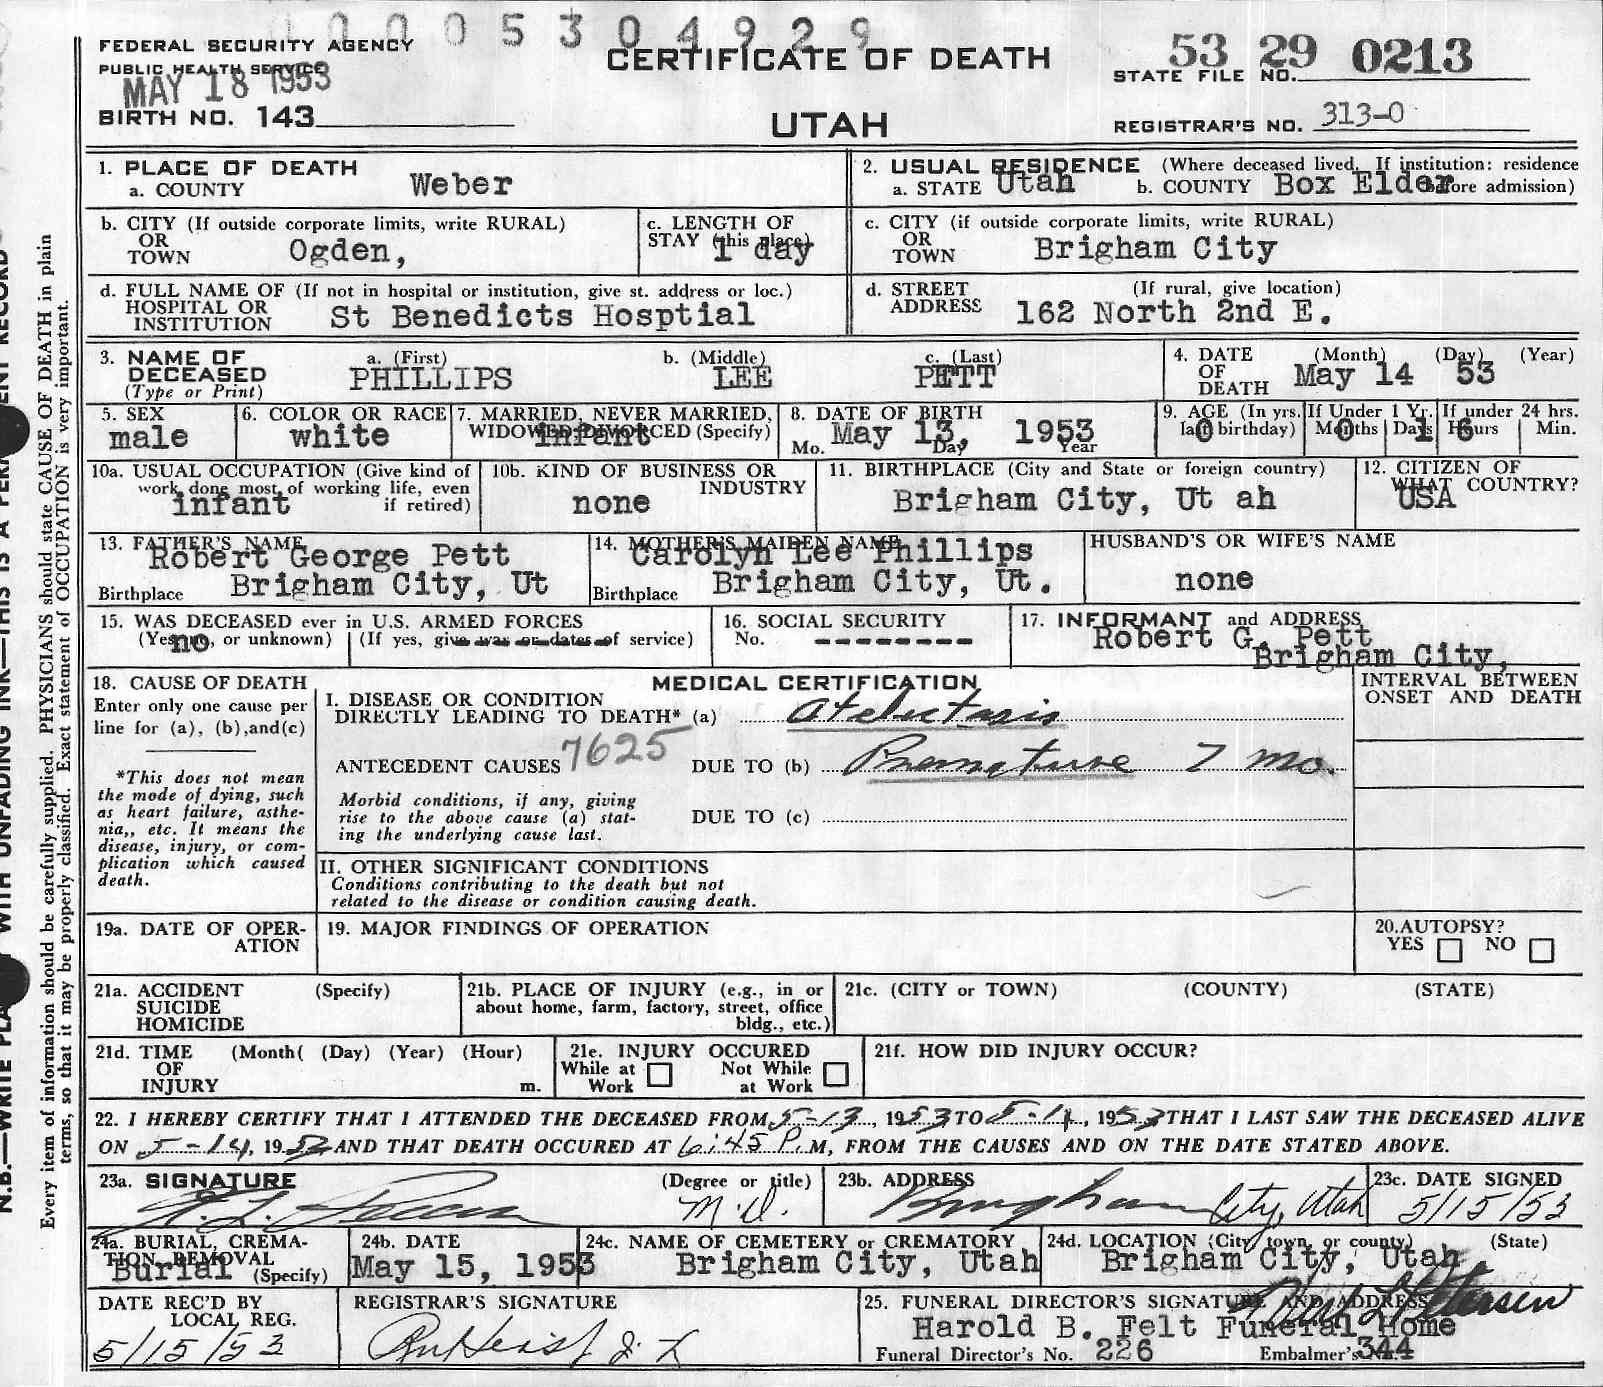 0005304929
FEDERAL SECURITY AGENCY
PUBLIC HEALTH SERVICE
MAY 18 1953
BIRTH NO. 143
CERTIFICATE OF DEATH
UTAH
53 29 0213
STATE FILE NO.
REGISTRAR'S NO. 313-0
1. PLACE OF DEATH
a. COUNTY Weber
2. USUAL RESIDENCE (Where deceased lived. If institution: residence before admission)
a. STATE Utah b. COUNTY Box Elder
b. CITY (If outside corporate limits, write RURAL)
OR
TOWN Ogden,
c. LENGTH OF
STAY (this place) 1 day
c. CITY (if outside corporate limits, write RURAL)
OR
TOWN Brigham City
d. FULL NAME OF (If not in hospital or institution, give st. address or loc.)
HOSPITAL OR
INSTITUTION St Benedicts Hosptial
d. STREET (If rural, give location)
ADDRESS 162 North 2nd E.
3. NAME OF
DECEASED
(Type or Print)
a. (First) PHILLIPS
b. (Middle) LEE
c. (Last) PETT
4. DATE (Month) (Day) (Year)
OF
DEATH May 14 53
5. SEX
male
6. COLOR OR RACE
white
7. MARRIED, NEVER MARRIED,
WIDOWED, DIVORCED (Specify)
infant
8. DATE OF BIRTH
Mo. May 13, Day 1953 Year
9. AGE (In yrs.
last birthday) 0
If Under 1 Yr.
Months 0 Days 1
If under 24 hrs.
Hours 6 Min.
10a. USUAL OCCUPATION (Give kind of
work done most of working life, even
if retired) infant
10b. KIND OF BUSINESS OR
INDUSTRY
none
11. BIRTHPLACE (City and State or foreign country)
Brigham City, Ut ah
12. CITIZEN OF
WHAT COUNTRY?
USA
13. FATHER'S NAME
Robert George Pett
Birthplace Brigham City, Ut
14. MOTHER'S MAIDEN NAME
Carolyn Lee Phillips
Birthplace Brigham City, Ut.
HUSBAND'S OR WIFE'S NAME
none
15. WAS DECEASED ever in U.S. ARMED FORCES
(Yes, no, or unknown) no (If yes, give war or dates of service)
16. SOCIAL SECURITY
No. ---------
17. INFORMANT and ADDRESS
Robert G. Pett
Brigham City,
18. CAUSE OF DEATH
Enter only one cause per
line for (a), (b), and (c)
*This does not mean
the mode of dying, such
as heart failure, asthe-
nia,, etc. It means the
disease, injury, or com-
plication which caused
death.
MEDICAL CERTIFICATION
INTERVAL BETWEEN
ONSET AND DEATH
I. DISEASE OR CONDITION
DIRECTLY LEADING TO DEATH* (a) Atelectasis
7625
ANTECEDENT CAUSES DUE TO (b) Premature 7 mo.
Morbid conditions, if any, giving
rise to the above cause (a) stat-
ing the underlying cause last.
DUE TO (c)
II. OTHER SIGNIFICANT CONDITIONS
Conditions contributing to the death but not
related to the disease or condition causing death.
19a. DATE OF OPER-
ATION
19. MAJOR FINDINGS OF OPERATION
20. AUTOPSY?
YES NO
21a. ACCIDENT (Specify)
SUICIDE
HOMICIDE
21b. PLACE OF INJURY (e.g., in or
about home, farm, factory, street, office
bldg., etc.)
21c. (CITY or TOWN) (COUNTY) (STATE)
21d. TIME (Month( (Day) (Year) (Hour)
OF
INJURY m.
21e. INJURY OCCURED
While at Work Not While at Work
21f. HOW DID INJURY OCCUR?
22. I HEREBY CERTIFY THAT I ATTENDED THE DECEASED FROM 5-13, 1953 TO 5-14, 1953 THAT I LAST SAW THE DECEASED ALIVE
ON 5-14, 1953 AND THAT DEATH OCCURED AT 6:45 P.M, FROM THE CAUSES AND ON THE DATE STATED ABOVE.
23a. SIGNATURE (Degree or title)
M.D.
23b. ADDRESS
Brigham City, Utah
23c. DATE SIGNED
5/15/53
24a. BURIAL, CREMA-
TION, REMOVAL
(Specify) Burial
24b. DATE
May 15, 1953
24c. NAME OF CEMETERY or CREMATORY
Brigham City, Utah
24d. LOCATION (City, town, or county) (State)
Brigham City, Utah
DATE REC'D BY
LOCAL REG.
5/15/53
REGISTRAR'S SIGNATURE
25. FUNERAL DIRECTOR'S SIGNATURE AND ADDRESS
Harold B. Felt Funeral Home
Funeral Director's No. 226 Embalmer's No. 344
Every item of information should be carefully supplied. PHYSICIANS should state CAUSE OF DEATH in plain
terms, so that it may be properly classified. Exact statement of OCCUPATION is very important.
N.B.—WRITE WITH UNFADING INK—THIS IS A RECORD